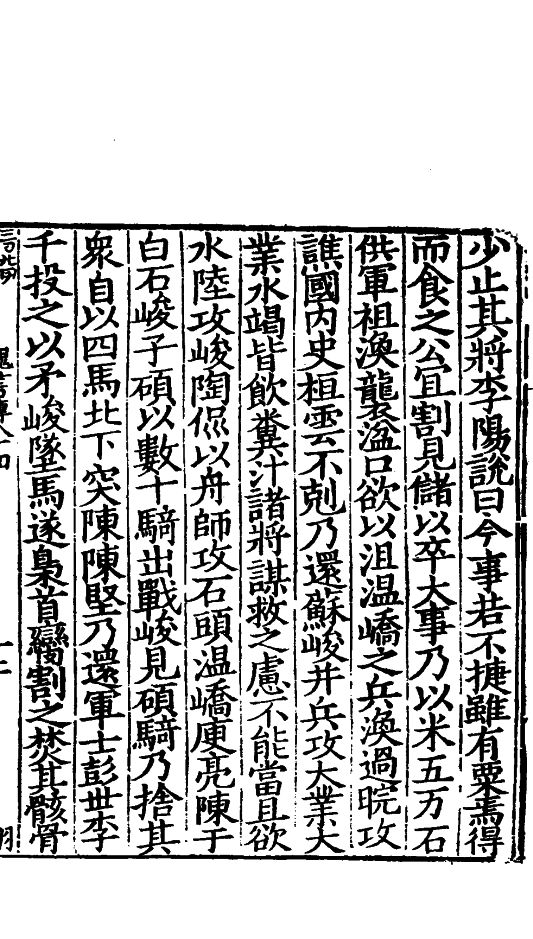 少止其將李陽說曰今事若不捷雖有粟焉得
而食之公宜割見儲以卒大事乃以米五万石
供軍祖渙襲湓口欲以沮温嶠之兵渙過晥攻
譙國内史桓雲不剋乃還蘇峻并兵攻大業大
業水竭皆飲糞汁諸將謀救之慮不能當且欲
水陸攻峻陶侃以舟師攻石頭温嶠庾亮陳于
白石峻子碩以數十騎出戰峻見碩騎乃捨其
衆自以四馬北下突陳陳堅乃還軍士彭丗李
千投之以矛峻墜馬遂梟首臠割之焚其骸骨